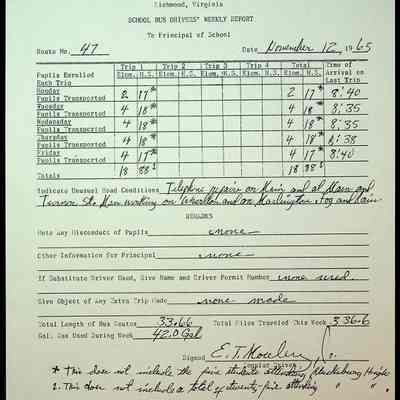 Richmond, Virginia
SCHOOL BUS DRIVERS' WEEKLY REPORT
To Principal of School
Route No. 47 Date November 12, 1965
Trip 1 Trip 2 Trip 3 Trip 4 Total Time of Arrival on Last Trip
Pupils Enrolled Each Trip Elem. H.S. Elem. H.S. Elem. H.S. Elem. H.S. Elem. H.S.
Monday Pupils Transported 2 17* 2 17* 8:40
Tuesday Pupils Transported 4 18* 4 18* 8:35
Wednesday Pupils Transported 4 18* 4 18* 8:35
Thursday Pupils Transported 4 18* 4 18* 8:38
Friday Pupils Transported 4 17* 4 17* 8:40
Totals 18 88 18 88
Indicate Unusual Road Conditions Telephone repairs on Main and at Main and
Turner St. Men working on and on Fog and rain
REMARKS
Note Any Misconduct of Pupils none
Other Information for Principal none
If Substitute Driver Used, Give Name and Driver Permit Number none used.
Give Object of Any Extra Trip Made none made
Total Length of Bus Routes 33.66 Total Miles Traveled This Week 336.6
Gal. Gas Used During Week 42.0 Gal
Signed E. T.
Regular Driver
* This does not include the five students attending Height
2. This does not include a total of twenty-five attending " "